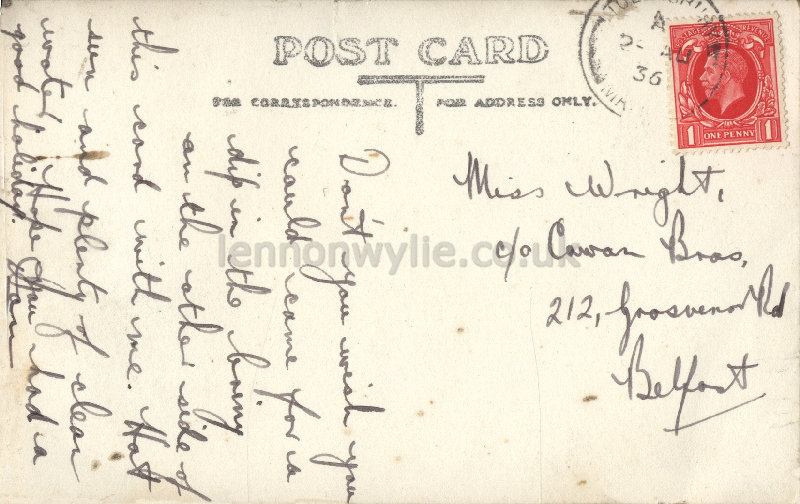 POST CARD
FOR CORRESPONDENCE.
FOR ADDRESS ONLY.
A
2- AU
36
POSTAGE REVENUE
1 ONE PENNY 1
Miss Wright,
c/o Cowan Bros,
212, Grosvenor Rd
Belfast
Don't you wish you
could come for a
dip in the briny
on the other side of
this card with me. Hot
sun and plenty of clear
water. Hope you had a
good holiday.
lennonwylie.co.uk